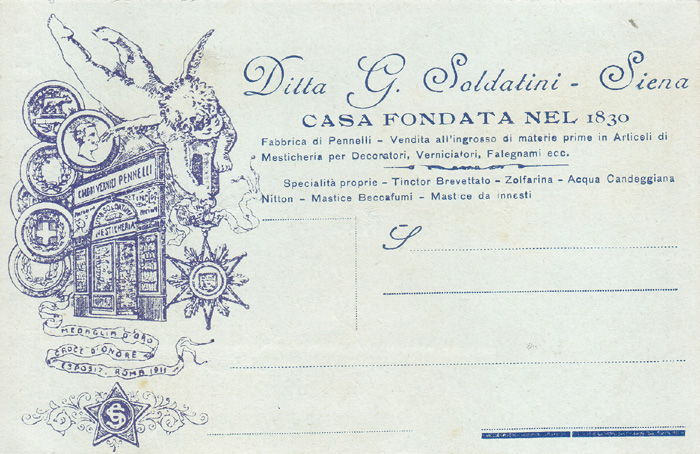 Ditta G. Soldatini - Siena
CASA FONDATA NEL 1830
Fabbrica di Pennelli - Vendita all'ingrosso di materie prime in Articoli di
Mesticheria per Decoratori, Verniciatori, Falegnami ecc.
Specialità proprie - Tinctor Brevettato - Zolfarina - Acqua Candeggiana
Nitton - Mastice Beccafumi - Mastice da innesti
S
COLORI VERNICI PENNELLI
G. SOLDATINI
MESTICHERIA
MEDAGLIA D'ORO
CROCE D'ONORE
ESPOSIZ. ROMA 1911
GS